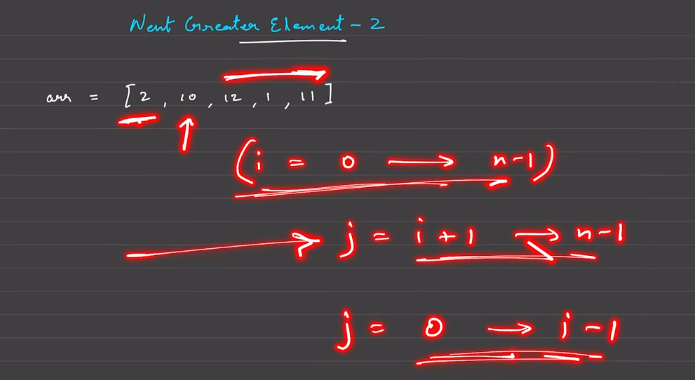 Next Greater Element - 2
arr = [2, 10, 12, 1, 11]
(i = 0 → n-1)
→ j = i+1 → n-1
j = 0 → i-1